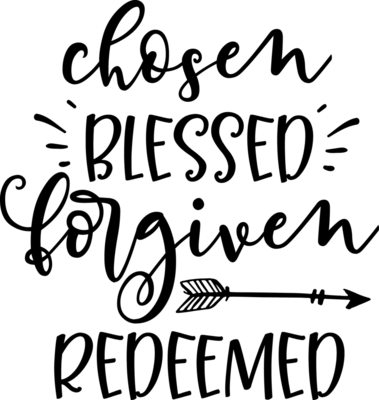 chosen
BLESSED
forgiven
REDEEMED